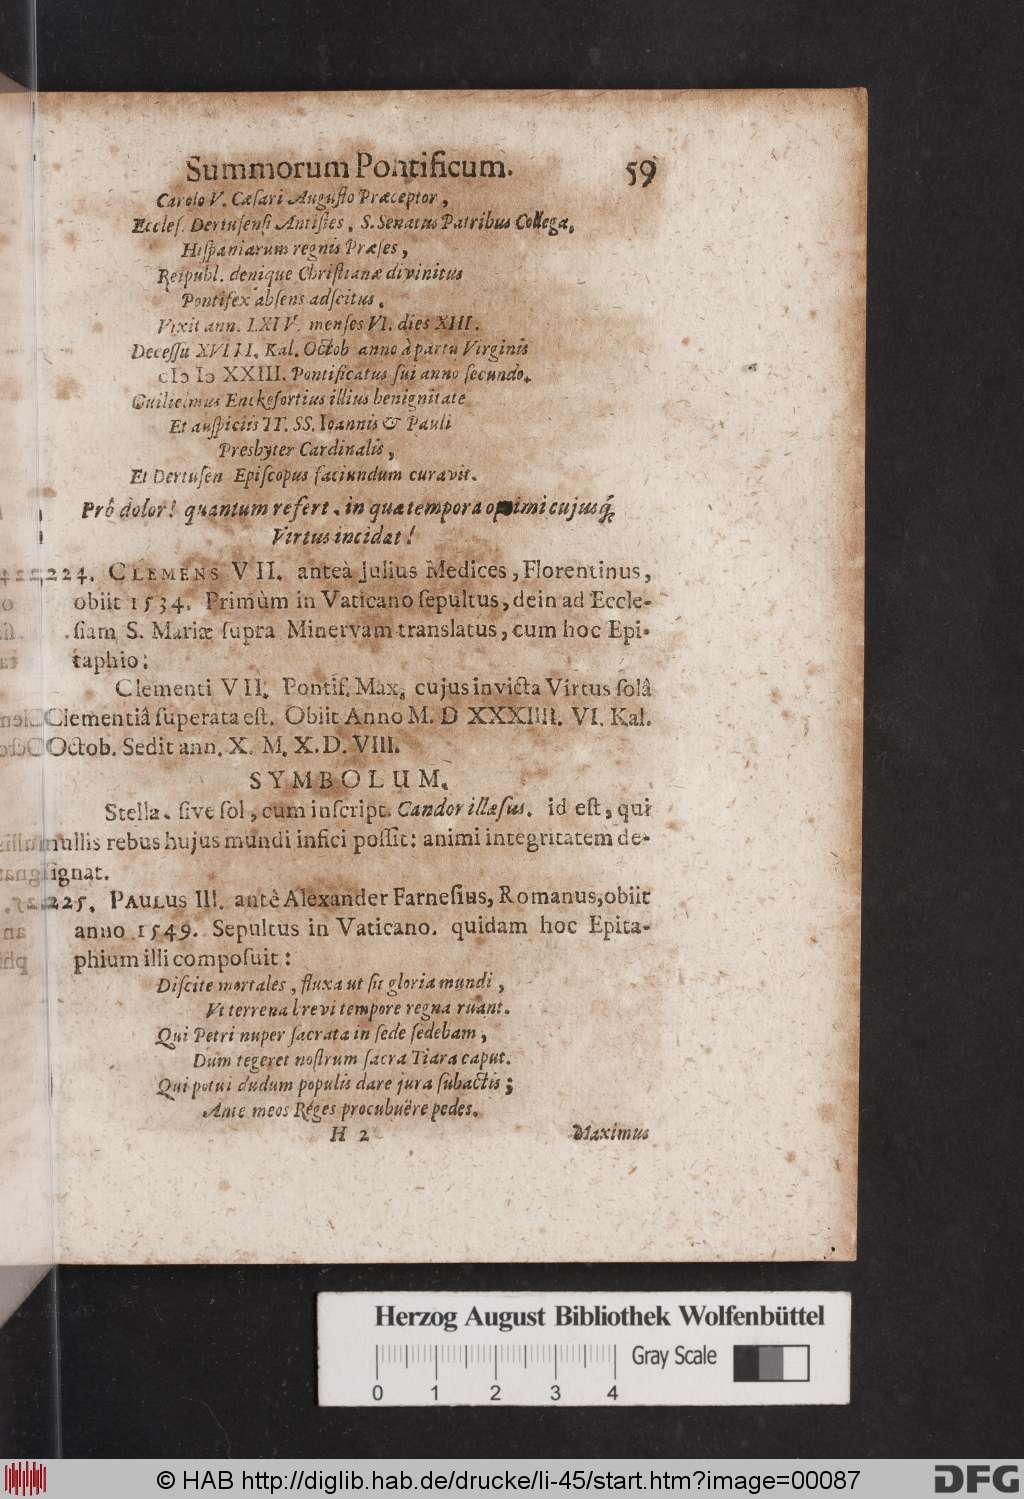 Summorum Pontificum. 59
Carolo V. Cæſari Auguſto Præceptor,
Eccleſ. Dertuſenſi Antiſtes, S. Senatus Patribus Collega,
Hiſpaniarum regnis Præſes,
Reipubl. denique Chriſtianæ divinitus
Pontifex abſens adſcitus.
Vixit ann. LXIV. menſes VI. dies XIII.
Deceſſit XVIII. Kal. Octob anno à partu Virginis
cIↄ Iↄ XXIII. Pontificatus ſui anno ſecundo.
Guilielmus Enckefortius illius benignitate
Et auſpiciis TT. SS. Ioannis & Pauli
Presbyter Cardinalis,
Et Dertuſen Epiſcopus faciundum curavit.
Prô dolor! quantum refert, in quæ tempora optimi cujusq́;
Virtus incidat!
224. CLEMENS VII. anteà julius Medices, Florentinus,
obiit 1534. Primùm in Vaticano ſepultus, dein ad Eccle-
ſiam S. Mariæ ſupra Minervam translatus, cum hoc Epi-
taphio:
Clementi VII. Pontif. Max. cujus invicta Virtus ſolâ
Clementiâ ſuperata eſt. Obiit Anno M. D XXXIIII. VI. Kal.
Octob. Sedit ann. X. M. X. D. VIII.
SYMBOLUM.
Stella. ſive ſol, cum inſcript. Candor illæſus. id eſt, qui
nullis rebus hujus mundi infici poſſit: animi integritatem de-
ſignat.
225. PAULUS III. antè Alexander Farneſius, Romanus, obiit
anno 1549. Sepultus in Vaticano. quidam hoc Epita-
phium illi compoſuit:
Diſcite mortales, fluxa ut ſit gloria mundi,
Ut terrena brevi tempore regna ruant.
Qui Petri nuper ſacrata in ſede ſedebam,
Dum tegeret noſtrum ſacra Tiara caput.
Qui potui dudum populis dare jura ſubactis;
Ante meos Réges procubuëre pedes.
H 2 Maximus
Herzog August Bibliothek Wolfenbüttel
Gray Scale
0 1 2 3 4
© HAB http://diglib.hab.de/drucke/li-45/start.htm?image=00087
DFG